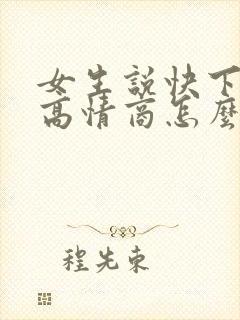 女生說快下
高情商怎麼
程先東